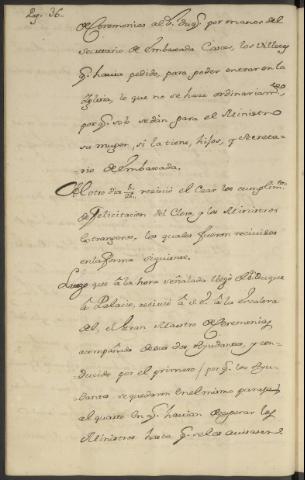 Pag. 36.
de Ceremonias al S. Duq.e por mano del
Secretario de Embaxada Cave, los villetes
q.e havia pedido, para poder entrar en la
Iglesia, lo que no se hace ordinariam.te
por q.e solo se dàn para el Ministro
su muger, si la tiene, hijos, y Secreta-
rio de Embaxada.
Al otro dia recivió el Czar los cumplim.tos
de felicitacion del Clero, y los Ministros
Extrangeros, los quales fueron recividos
en la forma siguiente.
Luego que à la hora señalada llegò el Duque
à Palacio, recivió à S.E. à la Escalera
del, el Gran Maestro de Ceremonias
acompañado de sus dos Ayudantes, y con-
ducido por el primero / por q.e los Ayu-
dantes se quedaron en el mismo parage /
al quarto en q.e havian de esperar los
Ministros hasta q.e se les avisasen